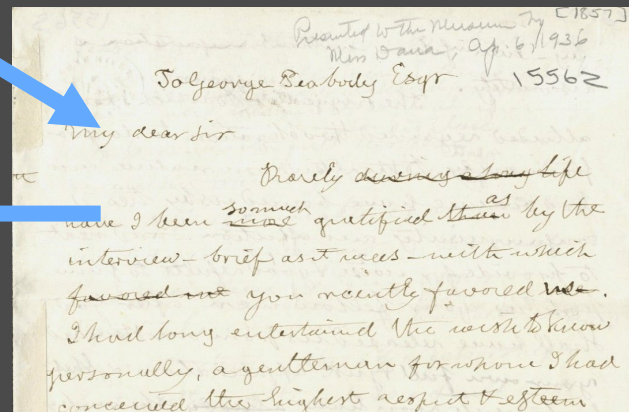 [1857]
Presented to the Museum by
Miss Dana, Ap. 6, 1936
15562
To George Peabody Esqr
My dear Sir
Rarely during a long life
so much as
have I been more gratified than by the
interview - brief as it was - with which
favored me you recently favored me.
I had long entertained the wish to know
personally, a gentleman for whom I had
conceived the highest respect & esteem